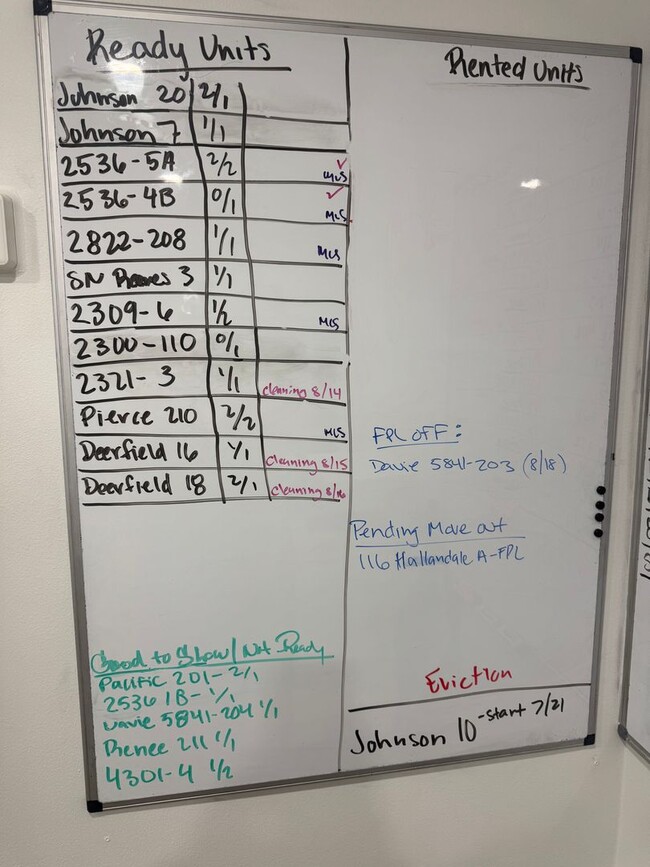 Ready Units
Johnson 20 2/1
Johnson 7 1/1
2536-5A 2/2 ✓ MLS
2536-4B 0/1 ✓ MLS
2822-208 1/1 MLS
SN 3 1/1
2309-6 1/2 MLS
2300-110 0/1
2321-3 1/1 cleaning 8/14
Pierce 210 2/2 MLS
Deerfield 16 1/1 cleaning 8/15
Deerfield 18 2/1 cleaning 8/16
Good to Show/Not Ready
Pacific 201-2/1
2536 1B-1/1
Davie 5841-204 1/1
Pierce 211 1/1
4301-4 1/2
Rented Units
FPL OFF:
Davie 5841-203 (8/18)
Pending Move out
116 Hallandale A-FPL
Eviction
Johnson 10 -start 7/21